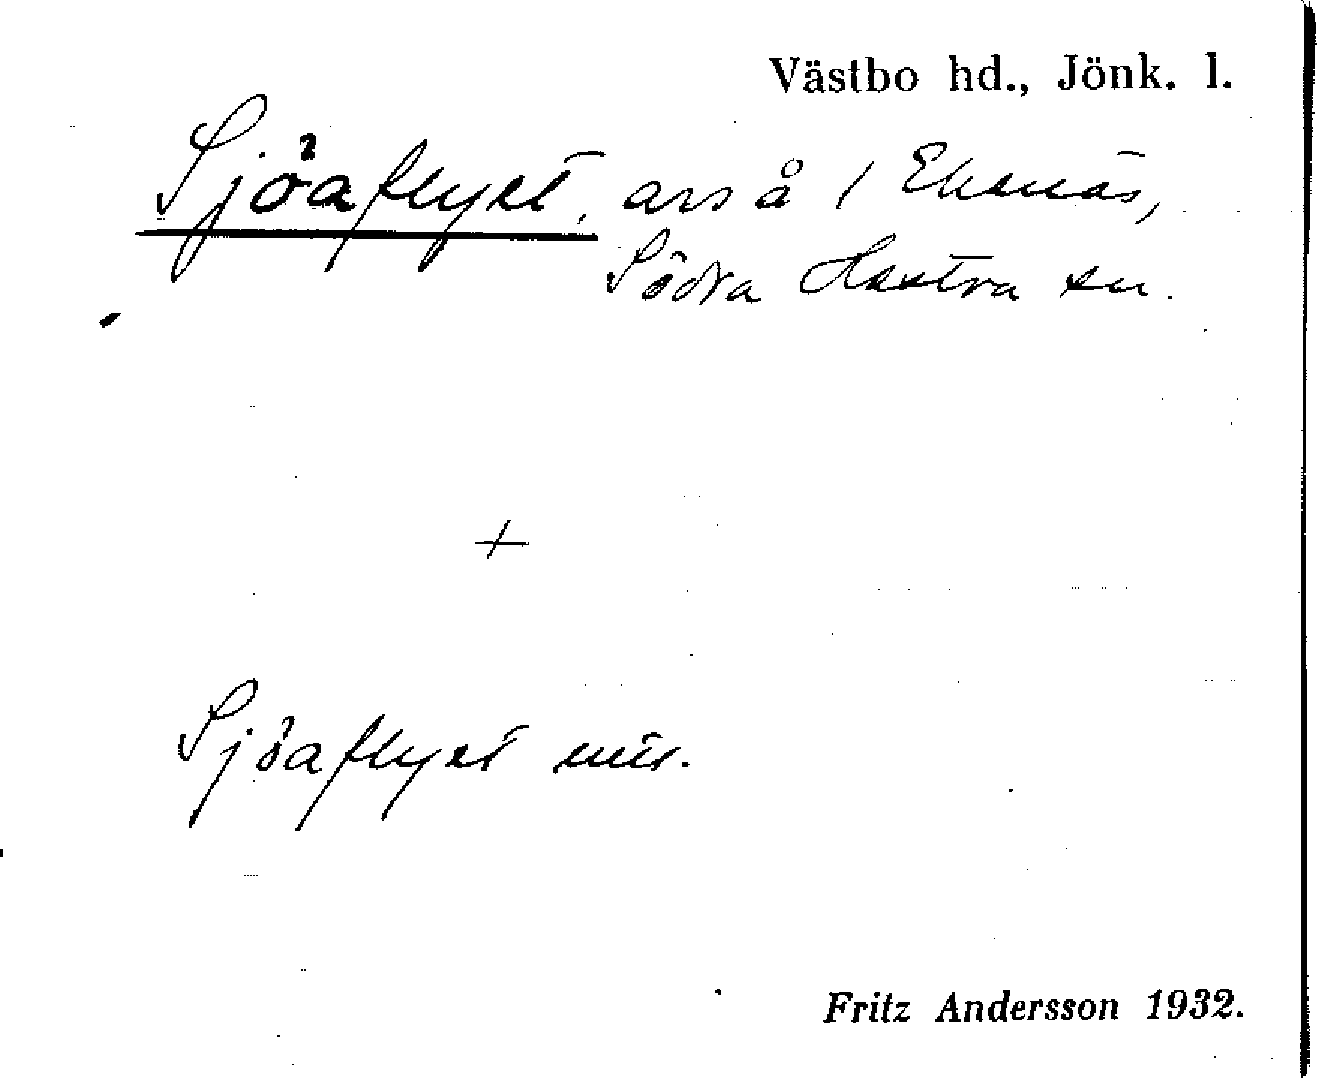 Västbo hd., Jönk. l.
Sjöaflyet, avs å / Ekenäs,
Södra Hestra sn.
+
Sjöaflyet mtr.
Fritz Andersson 1932.